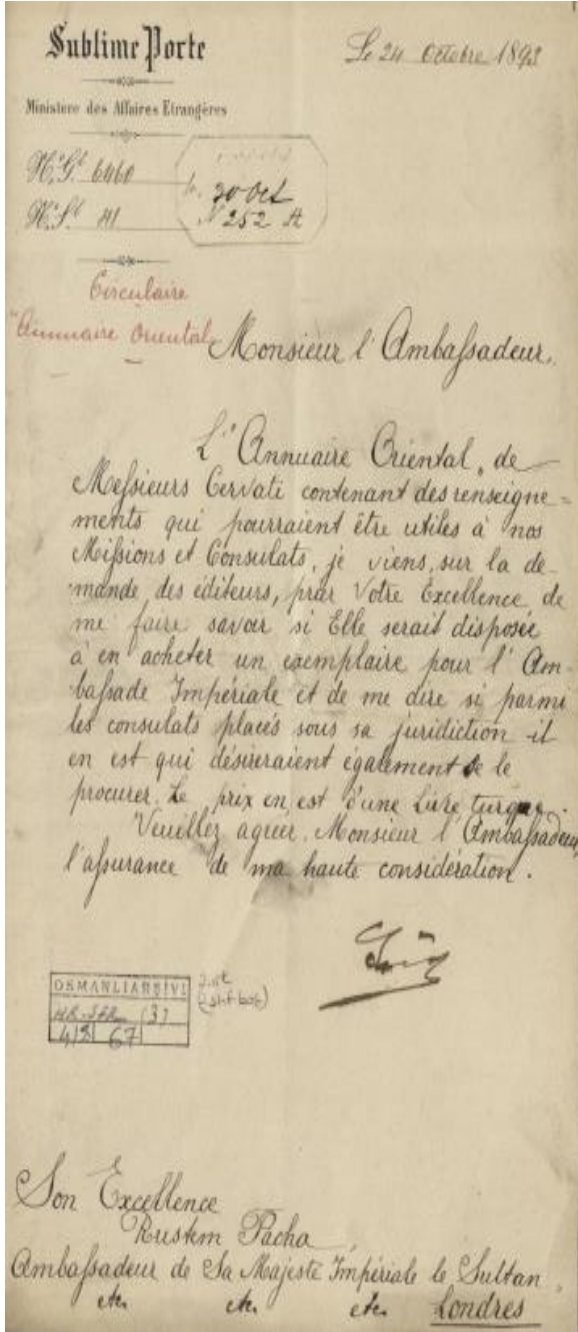 Sublime Porte
Le 24 Octobre 1893
Ministère des Affaires Etrangères
N° Gl 6460
N° Sl 41
30 Oct
N° 252 A
Circulaire
"Annuaire Oriental"
Monsieur l'Ambassadeur,
L'"Annuaire Oriental" de
Messieurs Cervati contenant des renseigne=
ments qui pourraient être utiles à nos
Missions et Consulats, je viens, sur la de-
mande des éditeurs, prier Votre Excellence de
me faire savoir si Elle serait disposée
à en acheter un exemplaire pour l'Am-
bassade Impériale et de me dire si parmi
les consulats placés sous sa juridiction il
en est qui désireraient également se le
procurer. Le prix en est d'une Livre turque.
Veuillez agréer, Monsieur l'Ambassadeur,
l'assurance de ma haute considération.
OSMANLI ARŞİVİ
HR.SFR (3)
418 67
Son Excellence
Rustem Pacha
Ambassadeur de Sa Majesté Impériale le Sultan
etc. etc. etc. Londres